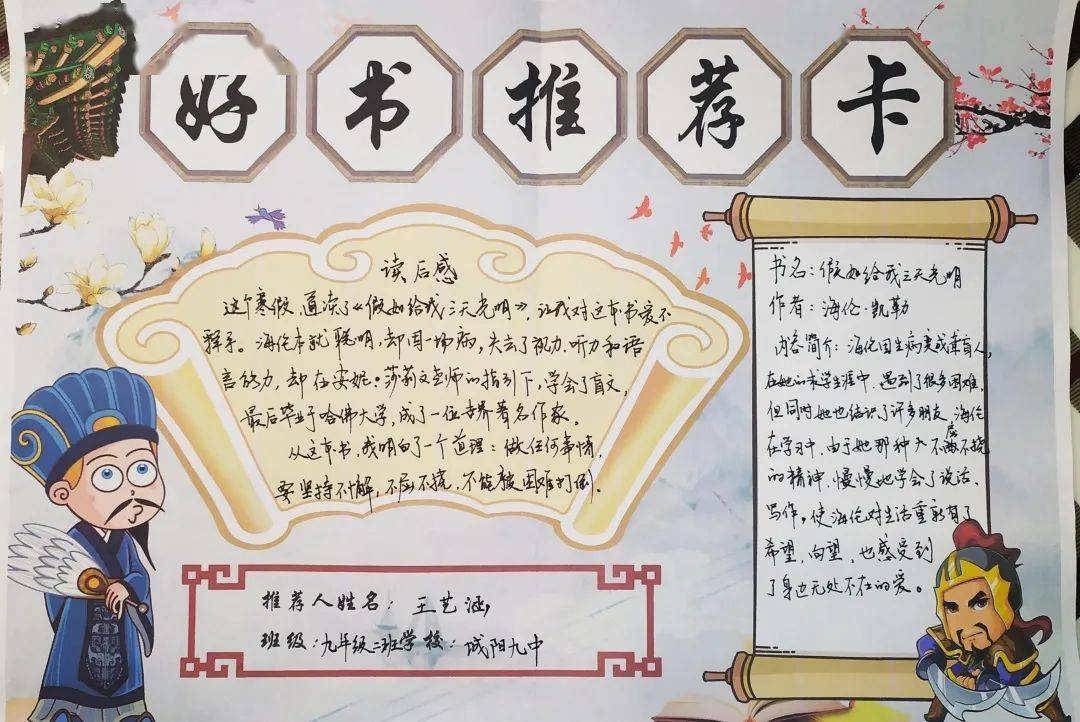 好书推荐卡
读后感
这个寒假,通读了《假如给我三天光明》,让我对这本书爱不
释手。海伦本就聪明,却因一场病,失去了视力、听力和语
言能力,却在安妮·莎莉文老师的指引下,学会了盲文,
最后毕业于哈佛大学,成了一位世界著名作家。
从这本书,我明白了一个道理:做任何事情,
要坚持不懈,不屈不挠,不能被困难打倒。
推荐人姓名:王艺涵
班级:九年级二班学校:城阳九中
书名:假如给我三天光明
作者:海伦·凯勒
内容简介:海伦因生病变成聋盲人,
在她的求学生涯中,遇到了很多困难,
但同时她也结识了许多朋友,海伦
在学习中,由于她那种不屈不挠
的精神,慢慢地学会了说话、
写作,使海伦对生活重新有了
希望,向望,也感受到
了身边无处不在的爱。